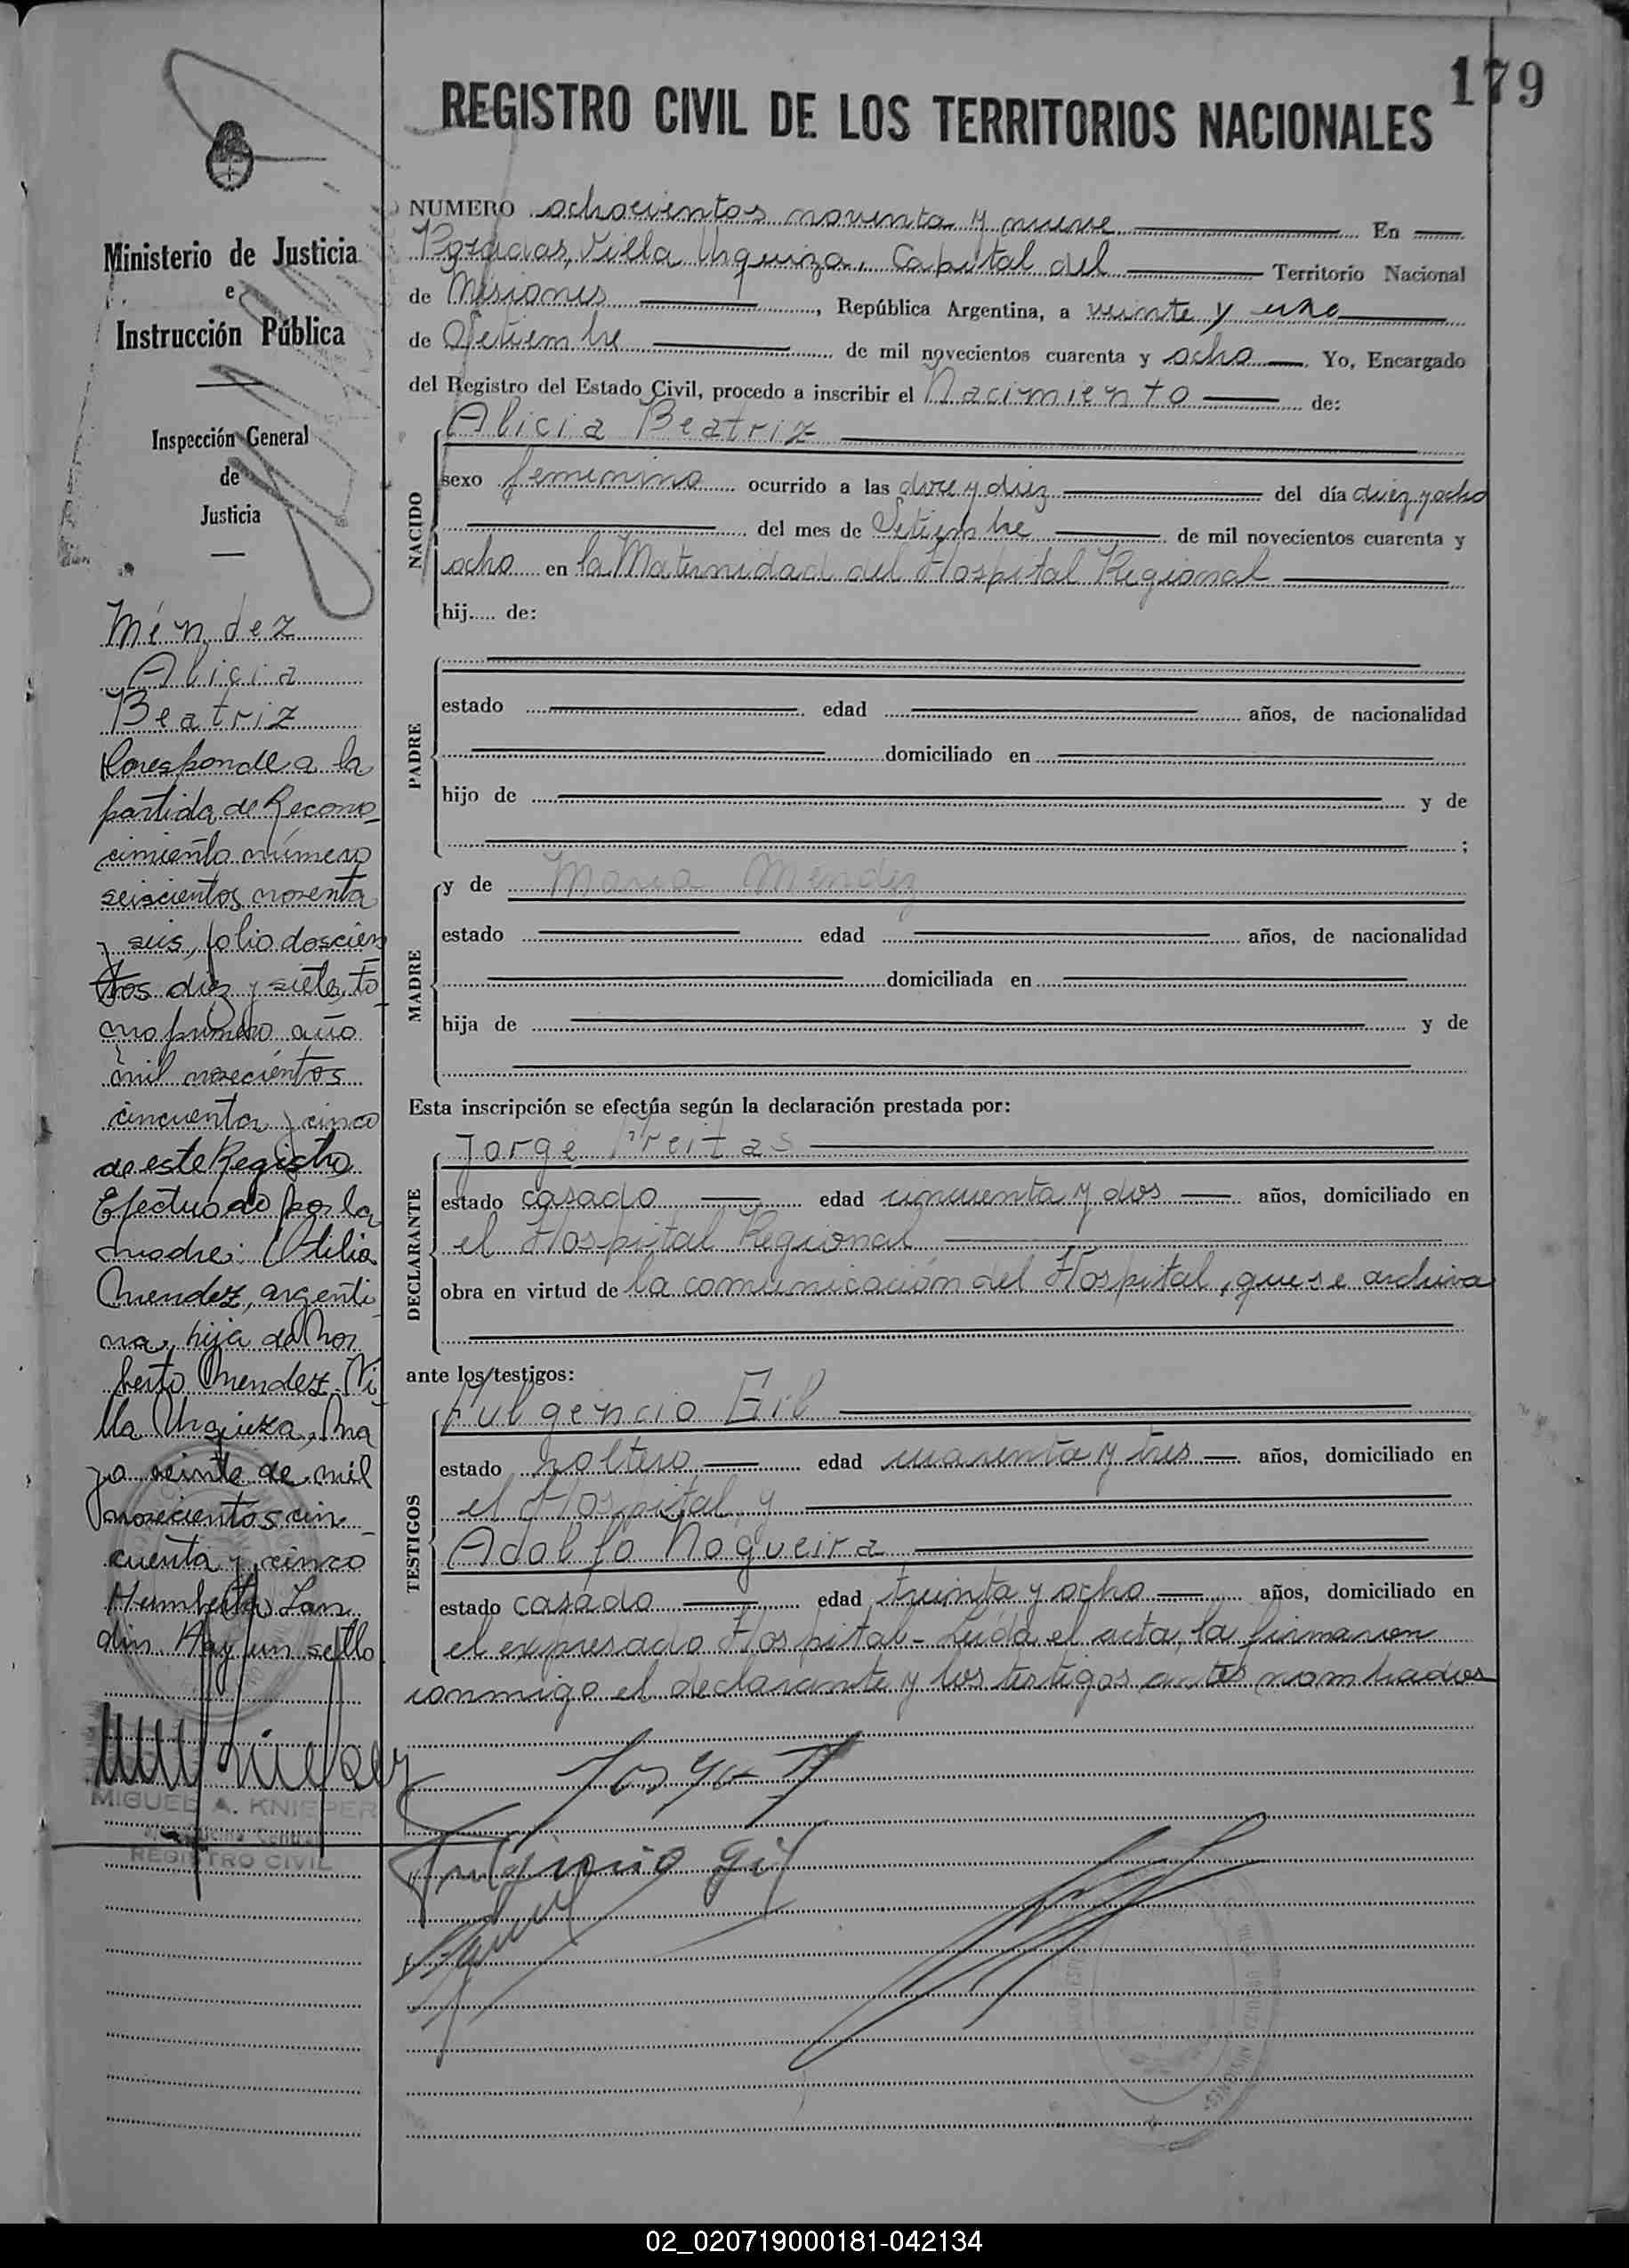 179
REGISTRO CIVIL DE LOS TERRITORIOS NACIONALES
Ministerio de Justicia
e
Instrucción Pública
Inspección General
de
Justicia
Méndez
Alicia
Beatriz
Corresponde a la
partida de Recono-
cimiento número
seiscientos noventa
y seis, folio doscien
tos diez y siete, to-
mo primero año
mil novecientos
cincuenta y cinco
de este Registro
Efectuado por la
madre: Otilia
Mendez, argenti-
na, hija de Nor-
berto Mendez. Vi-
lla Urquiza, Ma
yo veinte de mil
novecientos cin-
cuenta y cinco
Humberto Lan
din. Hay un sello
MIGUEL A. KNIEPER
Oficina Central
REGISTRO CIVIL
NUMERO ochocientos noventa y nueve En
Posadas, Villa Urquiza, Capital del Territorio Nacional
de Misiones, República Argentina, a veinte y uno
de Setiembre de mil novecientos cuarenta y ocho. Yo, Encargado
del Registro del Estado Civil, procedo a inscribir el Nacimiento de:
NACIDO
Alicia Beatriz
sexo femenino ocurrido a las doce y diez del día diez y ocho
del mes de Setiembre de mil novecientos cuarenta y
ocho en la Maternidad del Hospital Regional
hij..... de:
PADRE
estado edad años, de nacionalidad
domiciliado en
hijo de y de
;
MADRE
y de Maria Mendez
estado edad años, de nacionalidad
domiciliada en
hija de y de
Esta inscripción se efectúa según la declaración prestada por:
DECLARANTE
Jorge Freitas
estado casado edad cincuenta y dos años, domiciliado en
el Hospital Regional
obra en virtud de la comunicación del Hospital, que se archiva
ante los testigos:
TESTIGOS
Fulgencio Gil
estado soltero edad cuarenta y tres años, domiciliado en
el Hospital, y
Adolfo Nogueira
estado casado edad treinta y ocho años, domiciliado en
el expresado Hospital - Leída el acta, la firmaron
conmigo el declarante y los testigos antes nombrados
02_020719000181-042134